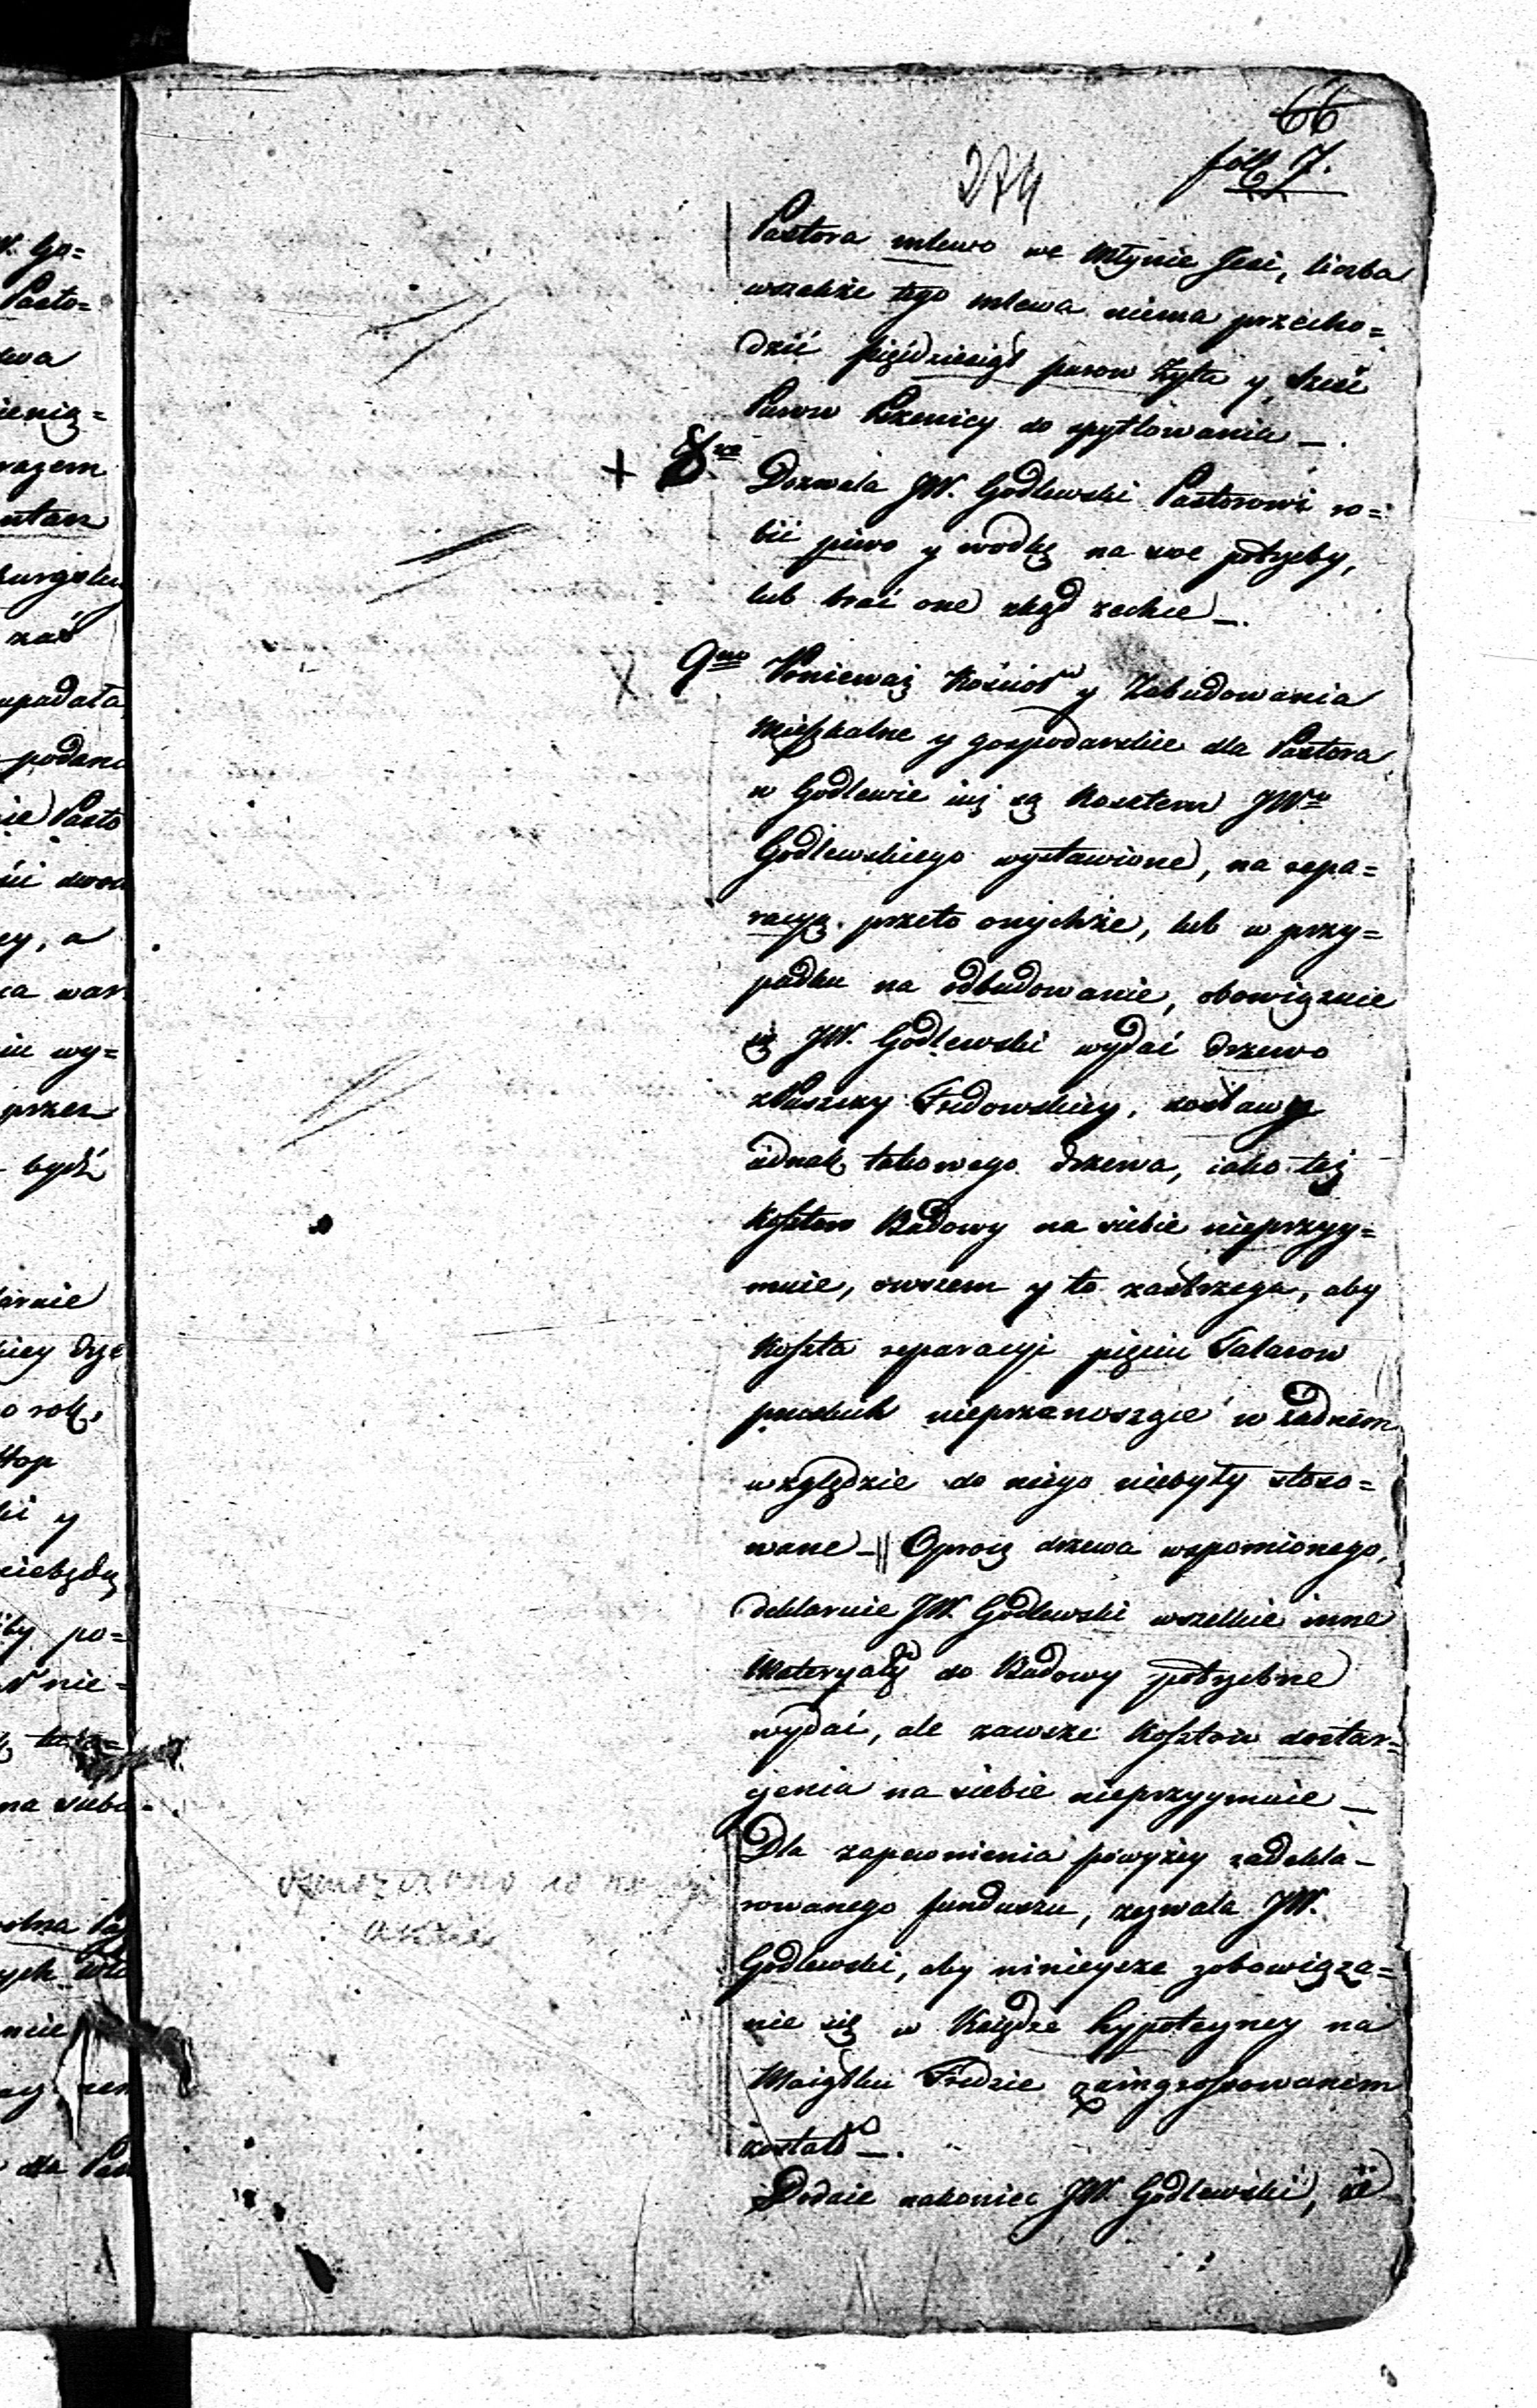 66
foll 7.
274
Pastora mlewo we Młynie Jesi, liczba
wszakże tego mlewa niema przecho=
dzić pięćdziesiąt purow Żyta y sześć
Purow Pszenicy do spytlowania —.
+ 8vo Dozwala JW. Godlewski Pastorowi ro=
bić piwo y wodkę na swe potrzeby,
lub brać one zkąd zechce —.
X 9no Ponieważ Kościoł y Zabudowania
Mieszkalne y gospodarskie dla Pastora
w Godlewie iuż są Kosztem JWo
Godlewskiego wystawione, na repa=
racyą przeto onychże, lub w przy=
padku na odbudowanie, obowiązuie
się JW. Godlewski wydać drzewo
z Puszczy Fredowskiey, zostawę
iednak takowego drzewa, iako też
Kosztow Budowy na siebie nieprzyy=
muie, owszem y to zastrzega, aby
Koszta reparacyi pięciu Talarow
pruskich nieprzenoszące w żadnem
względzie do niego niebyły stoso=
wane —|| Oprocz drzewa wspomionego,
deklaruie JW. Godlewski wszelkie inne
Materyały do Budowy potrzebne
wydać, ale zawsze Kosztow dostar=
czenia na siebie nieprzyymuie —
Dla zapewnienia powyżey zadekla-
rowanego funduszu, zezwala JW.
Godlewski, aby ninieysze zobowiąza=
nie się w Księdze hypoteczney na
Maiątku Fredzie zaingrossowanem
zostało —.
Dodaie nakoniec JW. Godlewski, że